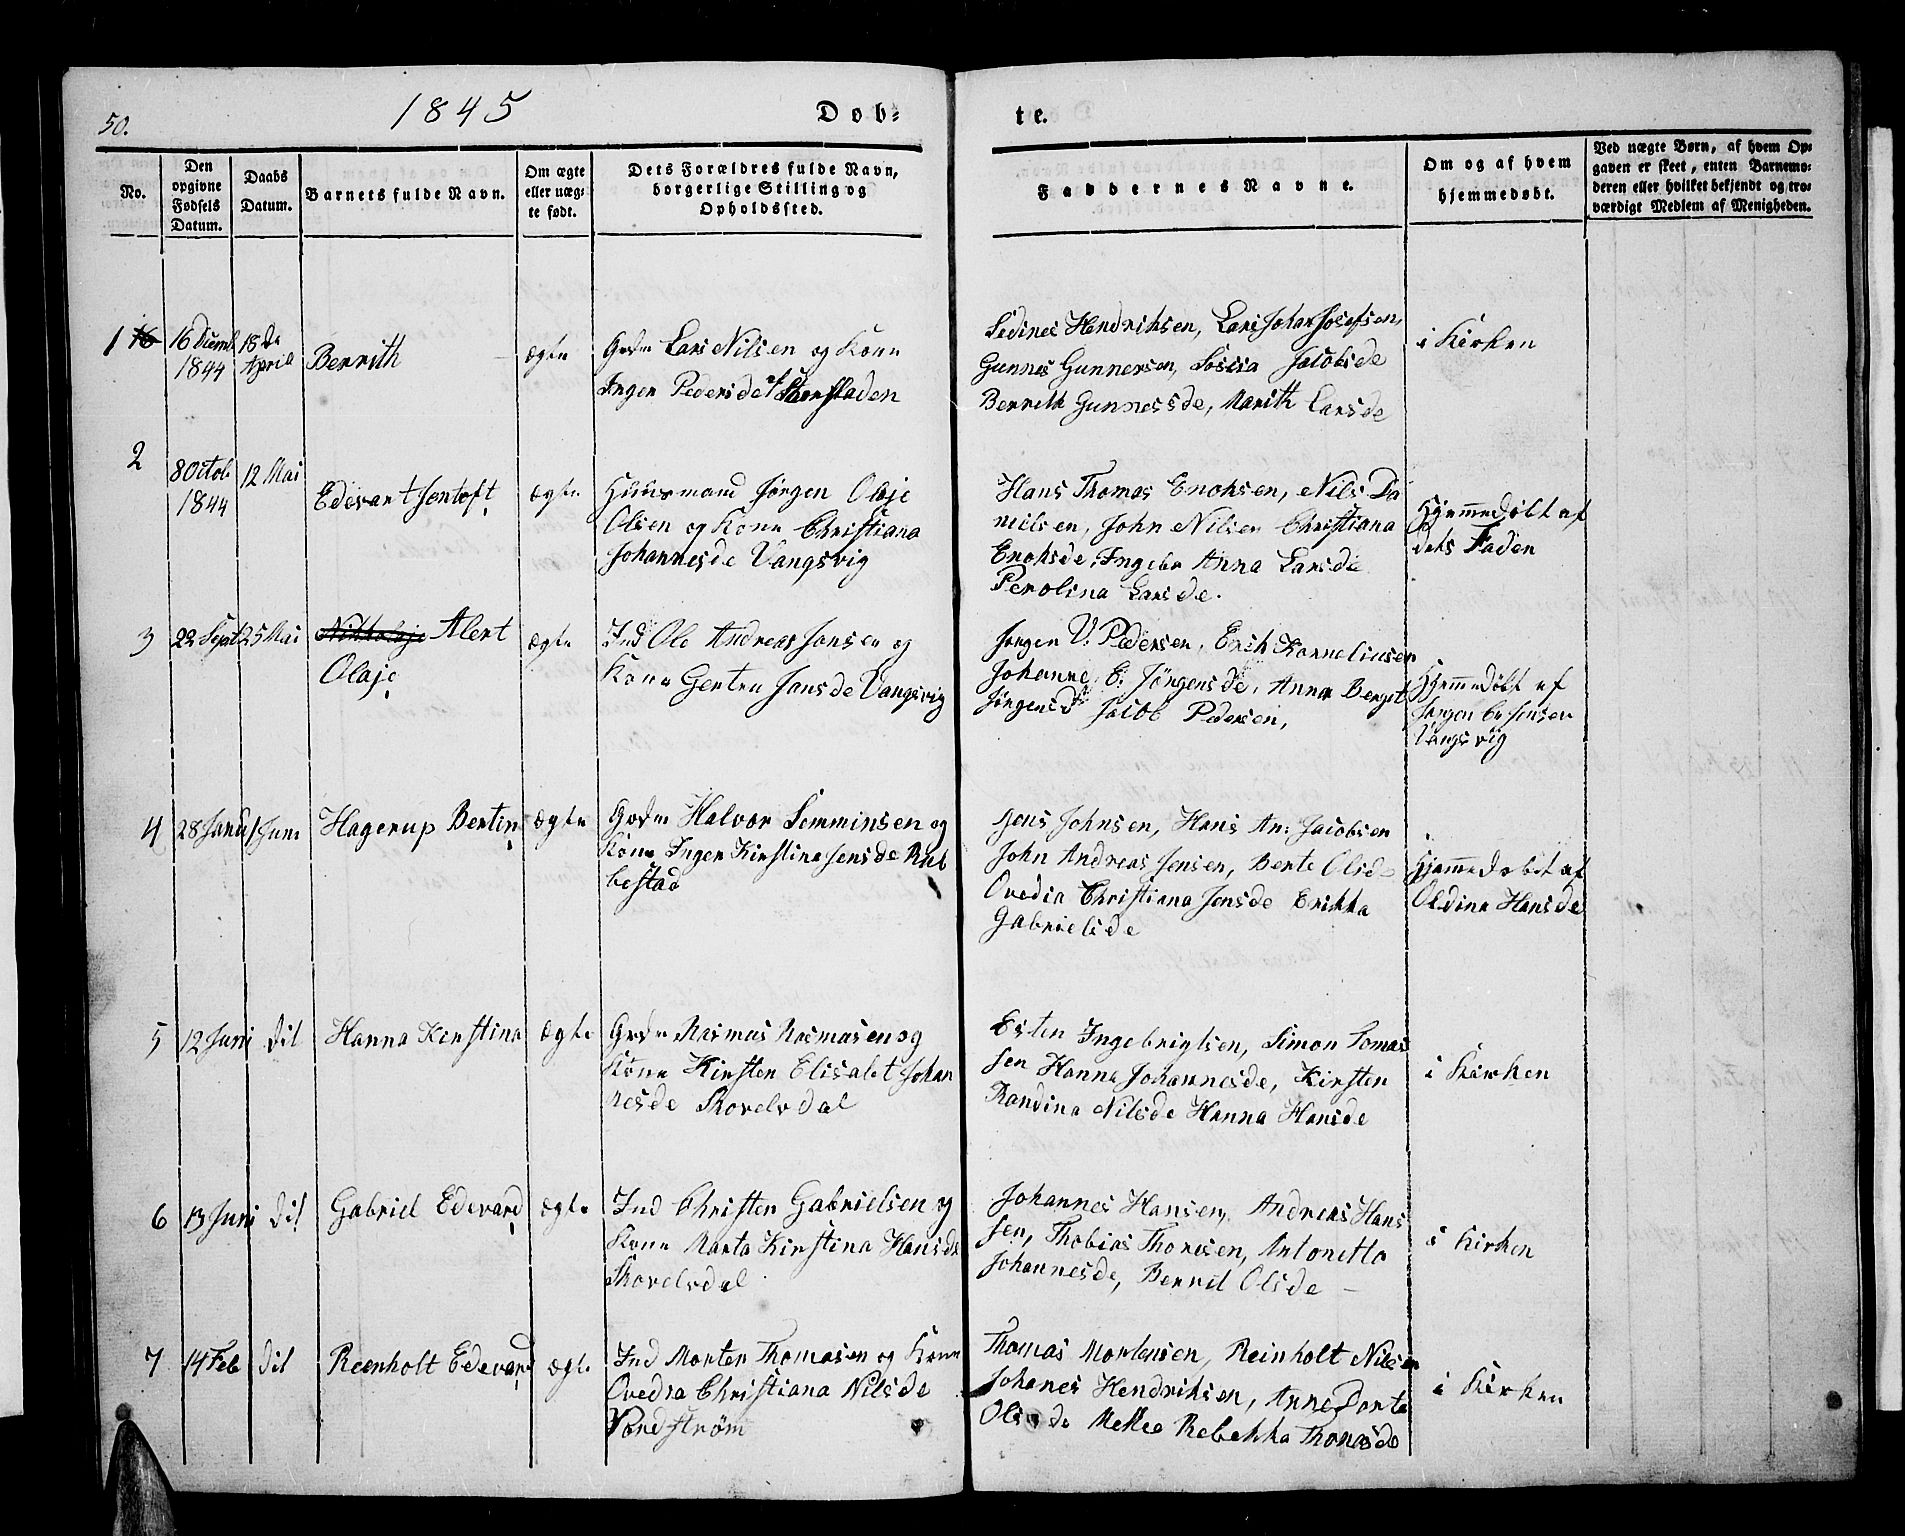 50.
1845
Døb-
te.
No.
Den
opgivne
Fødsels
Datum.
Daabs
Datum.
Barnets fulde Navn.
Om ægte
eller uæg-
te født.
Dets Forældres fulde Navn,
borgerlige Stilling og
Opholdssted.
Faddernes Navne.
Om og af hvem
hjemmedøbt.
Ved uægte Børn, af hvem Op-
gaven er skeet, enten Barnemo-
deren eller hvilket bekjendt og tro-
værdigt Medlem af Menigheden.
1
16 Decemb
1844
18de
April
Berrith
ægte
Grdm Lars Nilsen og Kone
Inger Pedersde
Sedines Hendriksen, Lars Johan Josefsen,
Gunnes Gunnersen, Jacobsde
Berreth Gunnesde, Marith Larsde
i Kirken
2
8 Octob
1844
12 Mai
Edevart Jentoft
ægte
Huusmand Jørgen Olaje
Olsen og Kone Christiana
Johannesde Vangsvig
Hans Thomas Enoksen, Nils Da
nielsen, John Nilsen Christiana
Enoksde, Ingebr Anna Larsde
Perolina Larsde.
Hjemmedøbt af
dets Fader
3
22 Sept
25 Mai
Nikkolaje Alert
Olaje
ægte
Ind Ole Andreas Jansen og
Kone Gertru Jansde Vangsvig
Jørgen V. Pedersen, Erik Korneliusen
Johanne E. Jørgensde, Anna Berget
Jørgensd Jacob Pedersen,
Hjemmedøbt af
Jørgen
Vangsvig
4
28 Janu
1 Juni
Hagerup Bertin
ægte
Grdm Halvor Simminsen og
Kone Inger Kirstina Jensde Rub
bestad
Jens Johnsen, Hans An. Jacobsen
John Andreas Jensen, Berte Olsd
Ovedia Christiana Jensde Erikka
Gabrielsde
Hjemmedøbt af
Oldina Hansde
5
12 Juni
dit
Hanna Kirstina
ægte
Grdm Rasmus Rasmusen og
Kone Kirsten Elisabet Johan
nesde Skovelvdal
Esten Ingebrigtsen, Simon Tomas
sen Hanna Johannesde, Kirsten
Randina Nilsde Hanna Hansde
i Kirken
6
13 Juni
dit
Gabriel Edevard
ægte
Ind Christen Gabrielsen og
Kone Marta Kirstina Hansde
Skovelvdal
Johannes Hansen, Andreas Hans
sen, Thobias Thoresen, Antonetta
Johannesde, Berret Olsde
i Kirken
7
14 Feb
dit
Reenholt Edevard
ægte
Ind Morten Thomasen og Kone
Ovedia Christiana Nilsde
Nordstrøm
Thomas Mortensen, Reinholt Nilsen
Johanes Hendriksen, Anne Dorte
Olsde Rebekka Thomasde
i Kirken